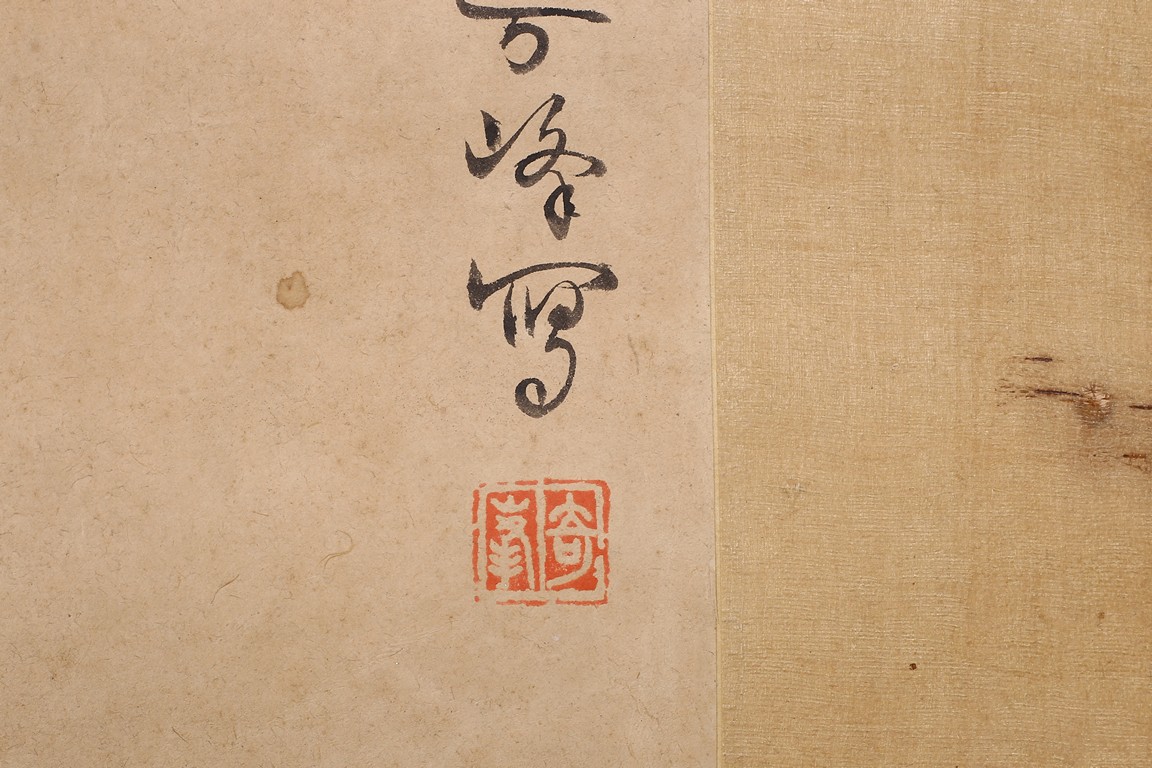 奇峰寫
奇峯